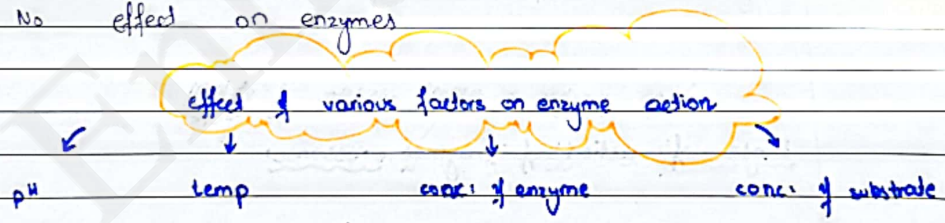 No effect on enzymes
effect of various factors on enzyme action
pH temp conc: of enzyme conc: of substrate